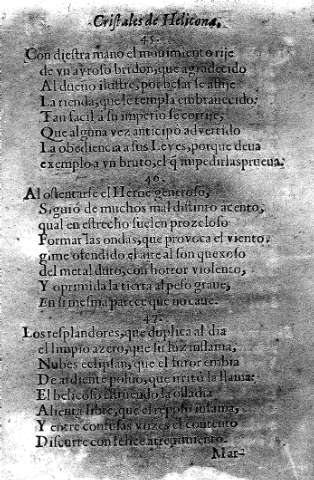 Cristales de Helicona.
45.
Con diestra mano el mouimiento rije
de vn ayroso bridon, que agradecido
Al dueño ilustre, por besar se aflije
La rienda, que le templa embrauecido:
Tan facil a su imperio se corrije,
Que alguna vez anticipò aduertido
La obediencia a sus Leyes, porque deua
exemplo a vn bruto, el q̃ impedirlas prueua.
46.
Al ostentarse el Heroe generoso,
Siguiò de muchos mal distinto acento,
qual en estrecho suelen prozeloso
Formar las ondas, que prouoca el viento,
gime ofendido el aire al son quexoso
del metal duro, con horror violento,
Y oprimida la tierra al peso graue,
En si mesma parece que no caue.
47.
Los resplandores, que duplica al dia
el limpio azero, que su luz inflama,
Nubes eclipsan, que el furor embia
De ardiente poluo, que irritò la llama:
El belicoso estruendo la osadia
Alienta libre, que el reposo infama,
Y entre confusas vozes el contento
Discurre con felice atreuimiento.
Mar-